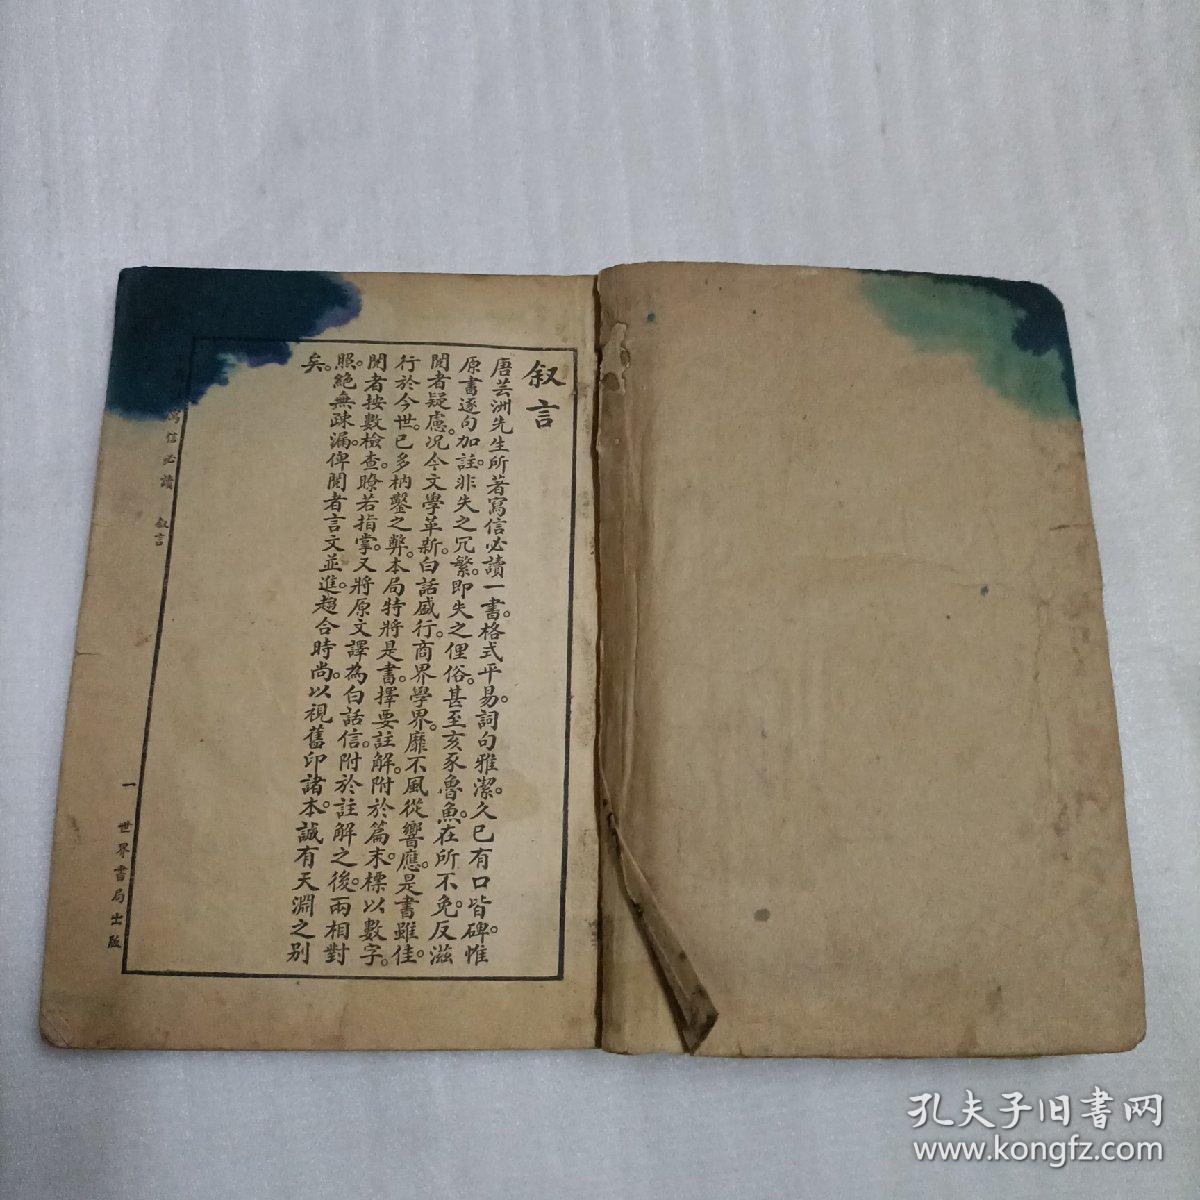 叙言
唐芸洲先生所著寫信必讀一書。格式平易。詞句雅潔。久已有口皆碑。惟
原書逐句加註。非失之冗繁。即失之俚俗。甚至亥豕魯魚。在所不免。反滋
閱者疑慮。况今文學革新。白話盛行。商界學界。靡不風從響應。是書雖佳。
行於今世。已多枘鑿之弊。本局特將是書。擇要註解。附於篇末。標以數字。
閱者按數檢查。瞭若指掌。又將原文譯為白話信。附於註解之後。兩相對
照。絕無疎漏。俾閱者言文並進。趨合時尚。以視舊印諸本。誠有天淵之別
矣。
寫信必讀 叙言
一 世界書局出版
孔夫子旧书网
www.kongfz.com